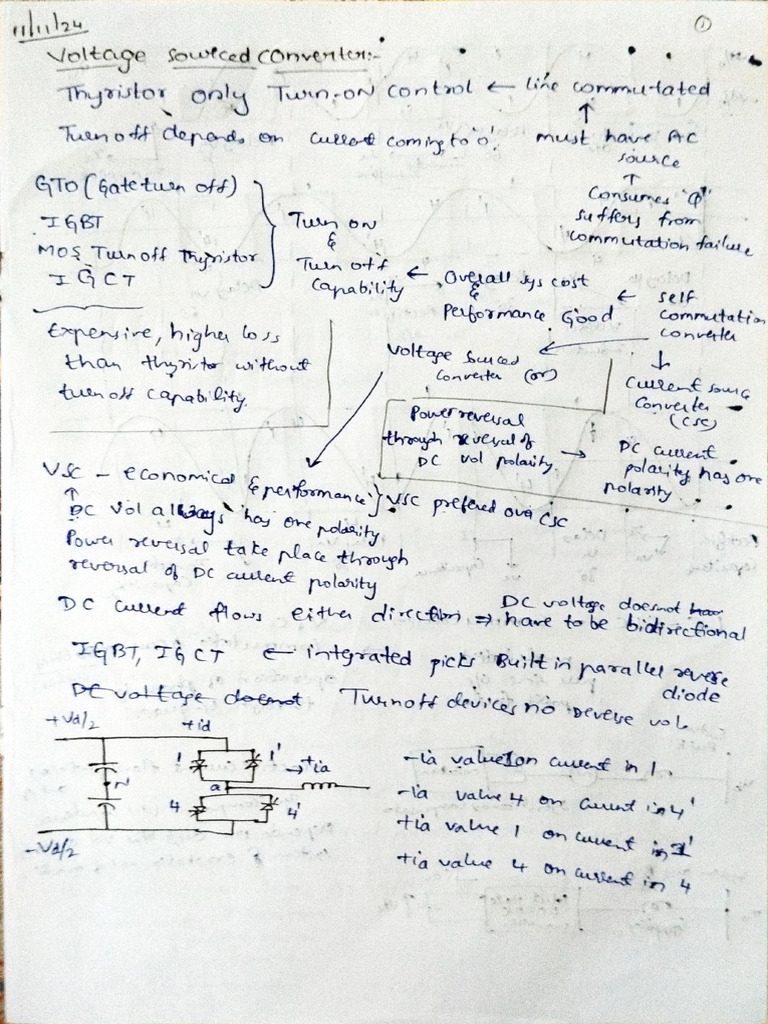 11/11/24
①
Voltage Sourced Converter:-
Thyristor only Turn-ON control ← line commutated
↑
Turn off depends on current coming to '0'. must have AC
source
↑
Consumes 'Q'
suffers from
commutation failure
GTO (Gate turn off)
IGBT
MOS Turnoff Thyristor
IGCT
Turn on
&
Turn off
Capability
← Overall sys cost
&
Performance Good
← self
commutation
converter
Expensive, higher loss
than thyristor without
turn off capability.
Voltage Sourced
Converter (or)
Current source
Converter
(CSC)
Power reversal
through reversal of
DC vol polarity.
→ DC current
polarity has one
polarity
VSC - economical & performance} VSC prefered over CSC
↑
DC Vol always has one polarity
Power reversal take place through
reversal of DC current polarity
DC current flows either direction ⇒ DC voltage doesnot
have to be bidirectional
IGBT, IGCT ← integrated picks Built in parallel reverse
diode
DC voltage doesnot Turnoff devices no reverse vol.
+Vd/2
+id
1
1'
→ +ia
a
4
4'
-Vd/2
-ia value 1 on current in 1
-ia value 4 on current in 4'
+ia value 1 on current in 1'
+ia value 4 on current in 4